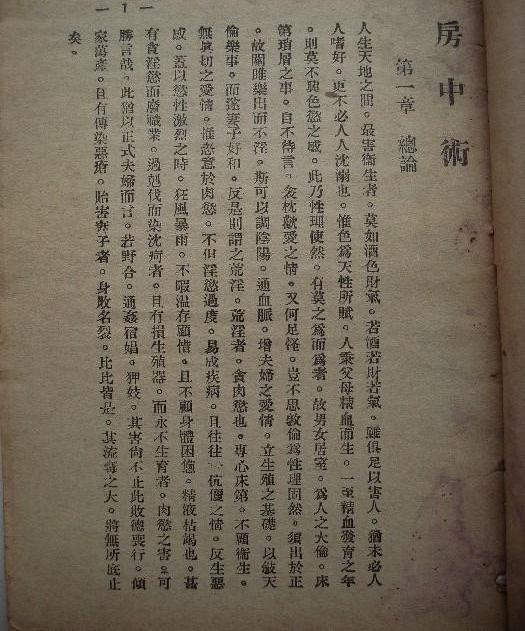 房中術
第一章 總論
人生天地之間。最害衛生者。莫如酒色財氣。若酒若財若氣。雖俱足以害人。猶未必人
人嗜好。更不必人人沈溺也。惟色爲天性所賦。人秉父母精血而生。一至精血發育之年
。則莫不現色慾之感。此乃性理使然。有莫之爲而爲者。故男女居室。爲人之大倫。床
第瑣屑之事。自不待言。衾枕歡愛之情。又何足怪。豈不思敦倫爲性理固然。須出於正
。故關雎樂出而不淫。斯可以調陰陽。通血脈。增夫婦之愛情。立生殖之基礎。以敍天
倫樂事。而遂妻子好和。反是則謂之荒淫。荒淫者。貪肉慾也。專心床第。不顧衞生。
無眞切之愛情。惟恣意於肉慾。不但淫慾過度。易成疾病。且往往一伉儷之情。反生惡
感。蓋以慾性激烈之時。狂風暴雨。不暇溫存顧惜。且不顧身體困憊。精液枯竭也。甚
有貪淫慾而廢職業。過剋伐而染沈疴者。且有損生殖器。而永不生育者。肉慾之害。可
勝言哉。此猶以正式夫婦而言。若野合。通姦宿娼。狎妓。其害尙不止此敗德喪行。傾
家蕩產。且有傳染惡瘡。貽害妻子者。身敗名裂。比比皆是。其流毒之大。將無所底止
矣。
— 1 —